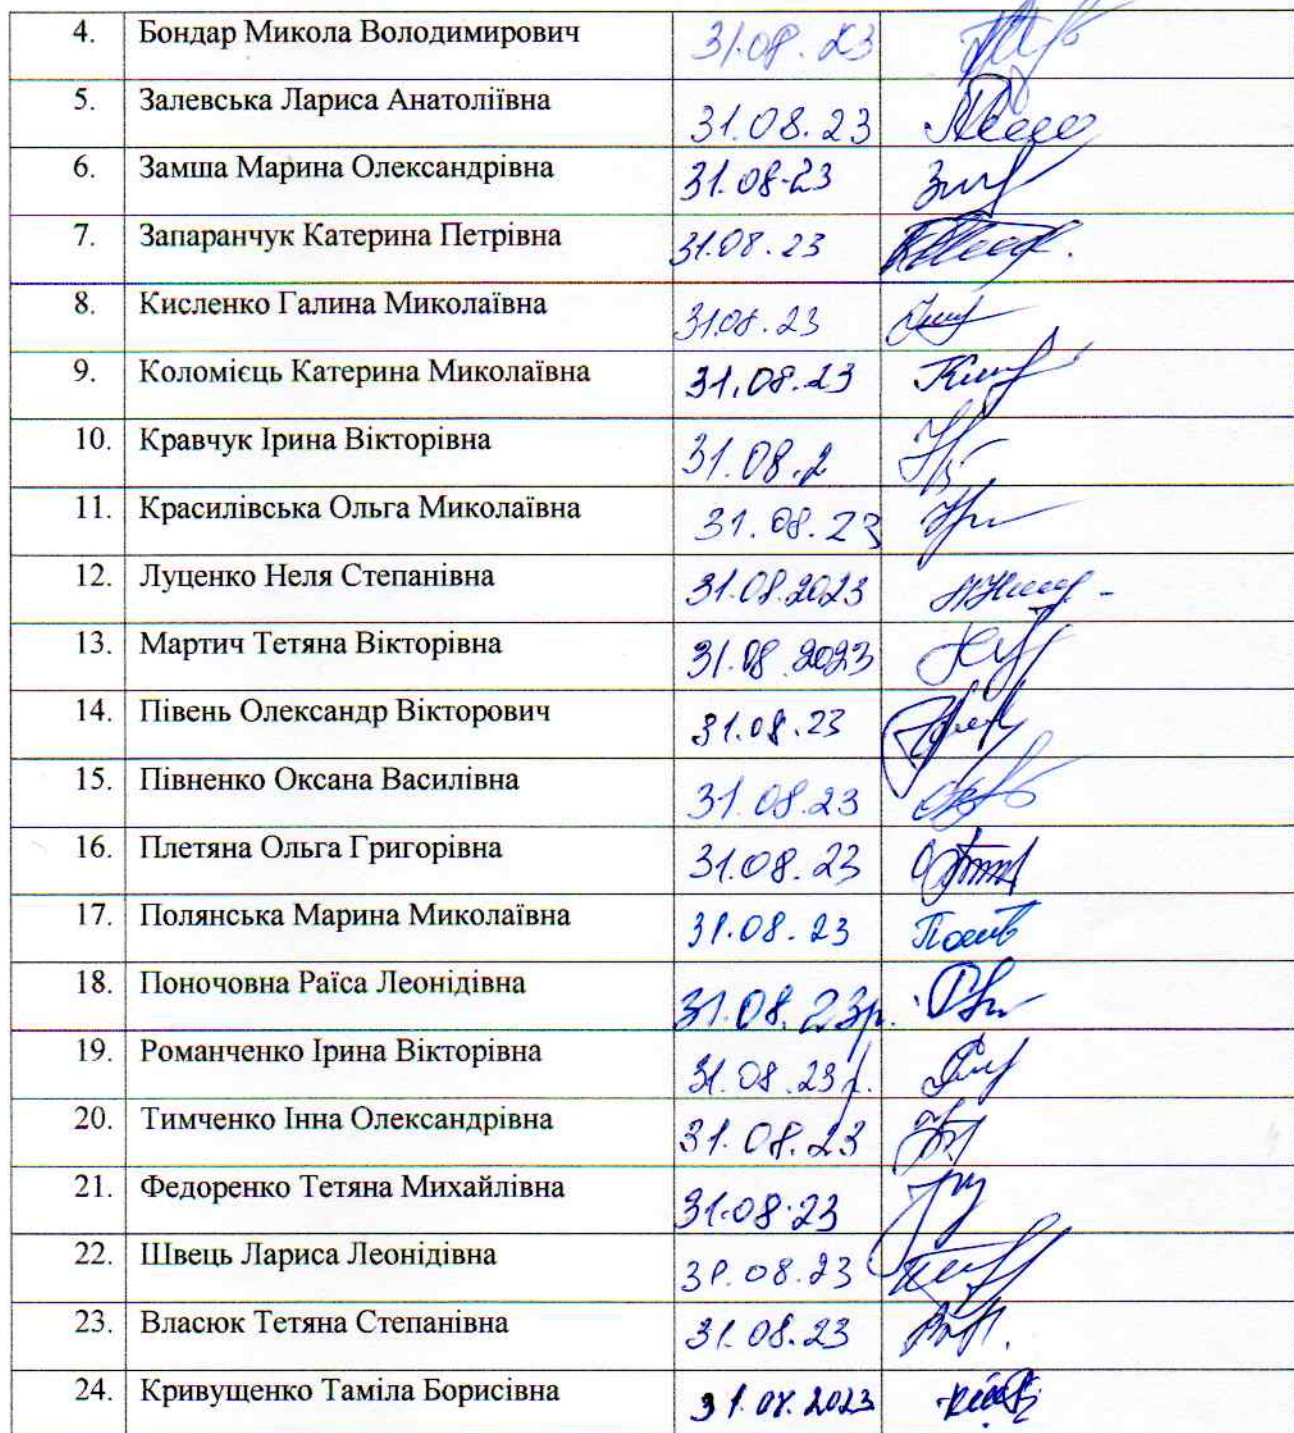 4. Бондар Микола Володимирович 31.08.23
5. Залевська Лариса Анатоліївна 31.08.23
6. Замша Марина Олександрівна 31.08.23
7. Запаранчук Катерина Петрівна 31.08.23
8. Кисленко Галина Миколаївна 31.08.23
9. Коломієць Катерина Миколаївна 31.08.23
10. Кравчук Ірина Вікторівна 31.08.2
11. Красилівська Ольга Миколаївна 31.08.23
12. Луценко Неля Степанівна 31.08.2023
13. Мартич Тетяна Вікторівна 31.08.2023
14. Півень Олександр Вікторович 31.08.23
15. Півненко Оксана Василівна 31.08.23
16. Плетяна Ольга Григорівна 31.08.23
17. Полянська Марина Миколаївна 31.08.23
18. Поночовна Раїса Леонідівна 31.08.23р.
19. Романченко Ірина Вікторівна 31.08.23р.
20. Тимченко Інна Олександрівна 31.08.23
21. Федоренко Тетяна Михайлівна 31.08.23
22. Швець Лариса Леонідівна 31.08.23
23. Власюк Тетяна Степанівна 31.08.23
24. Кривущенко Таміла Борисівна 31.08.2023